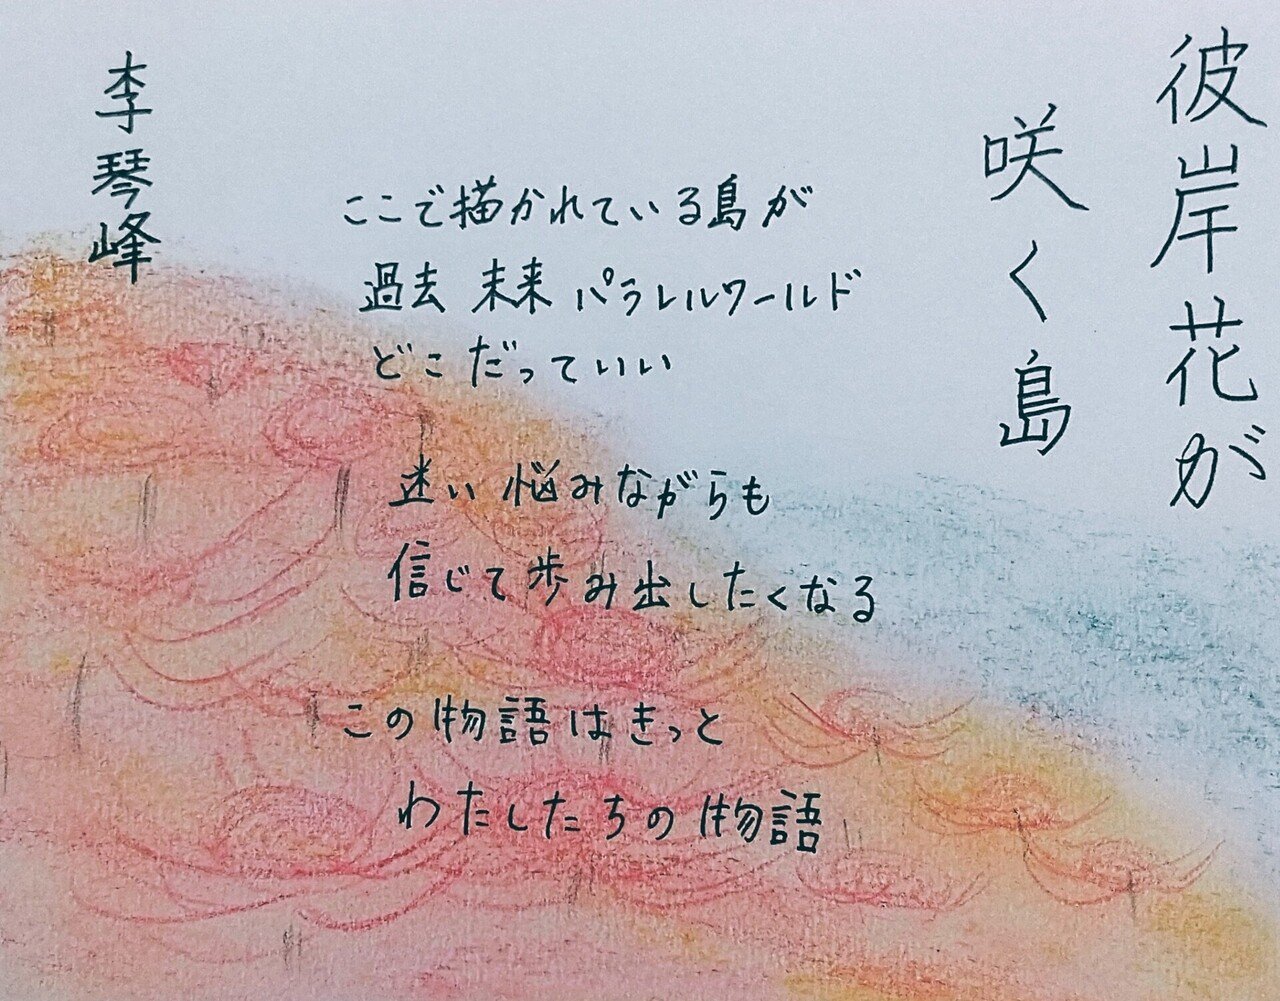 彼岸花が
咲く島
ここで描かれている島が
過去 未来 パラレルワールド
どこだっていい
迷い 悩みながらも
信じて歩み出したくなる
この物語はきっと
わたしたちの物語
李琴峰